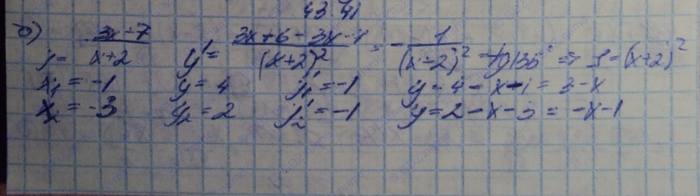 43.41
б) y = (3x+7)/(x+2) y' = (3x+6-3x-7)/(x+2)² = -1/(x+2)² = tg135° => 1=(x+2)²
x₁ = -1 y = 4 y₁' = -1 y = 4 - x - 1 = 3-x
x₂ = -3 y₂ = 2 y₂' = -1 y = 2 - x - 3 = -x-1